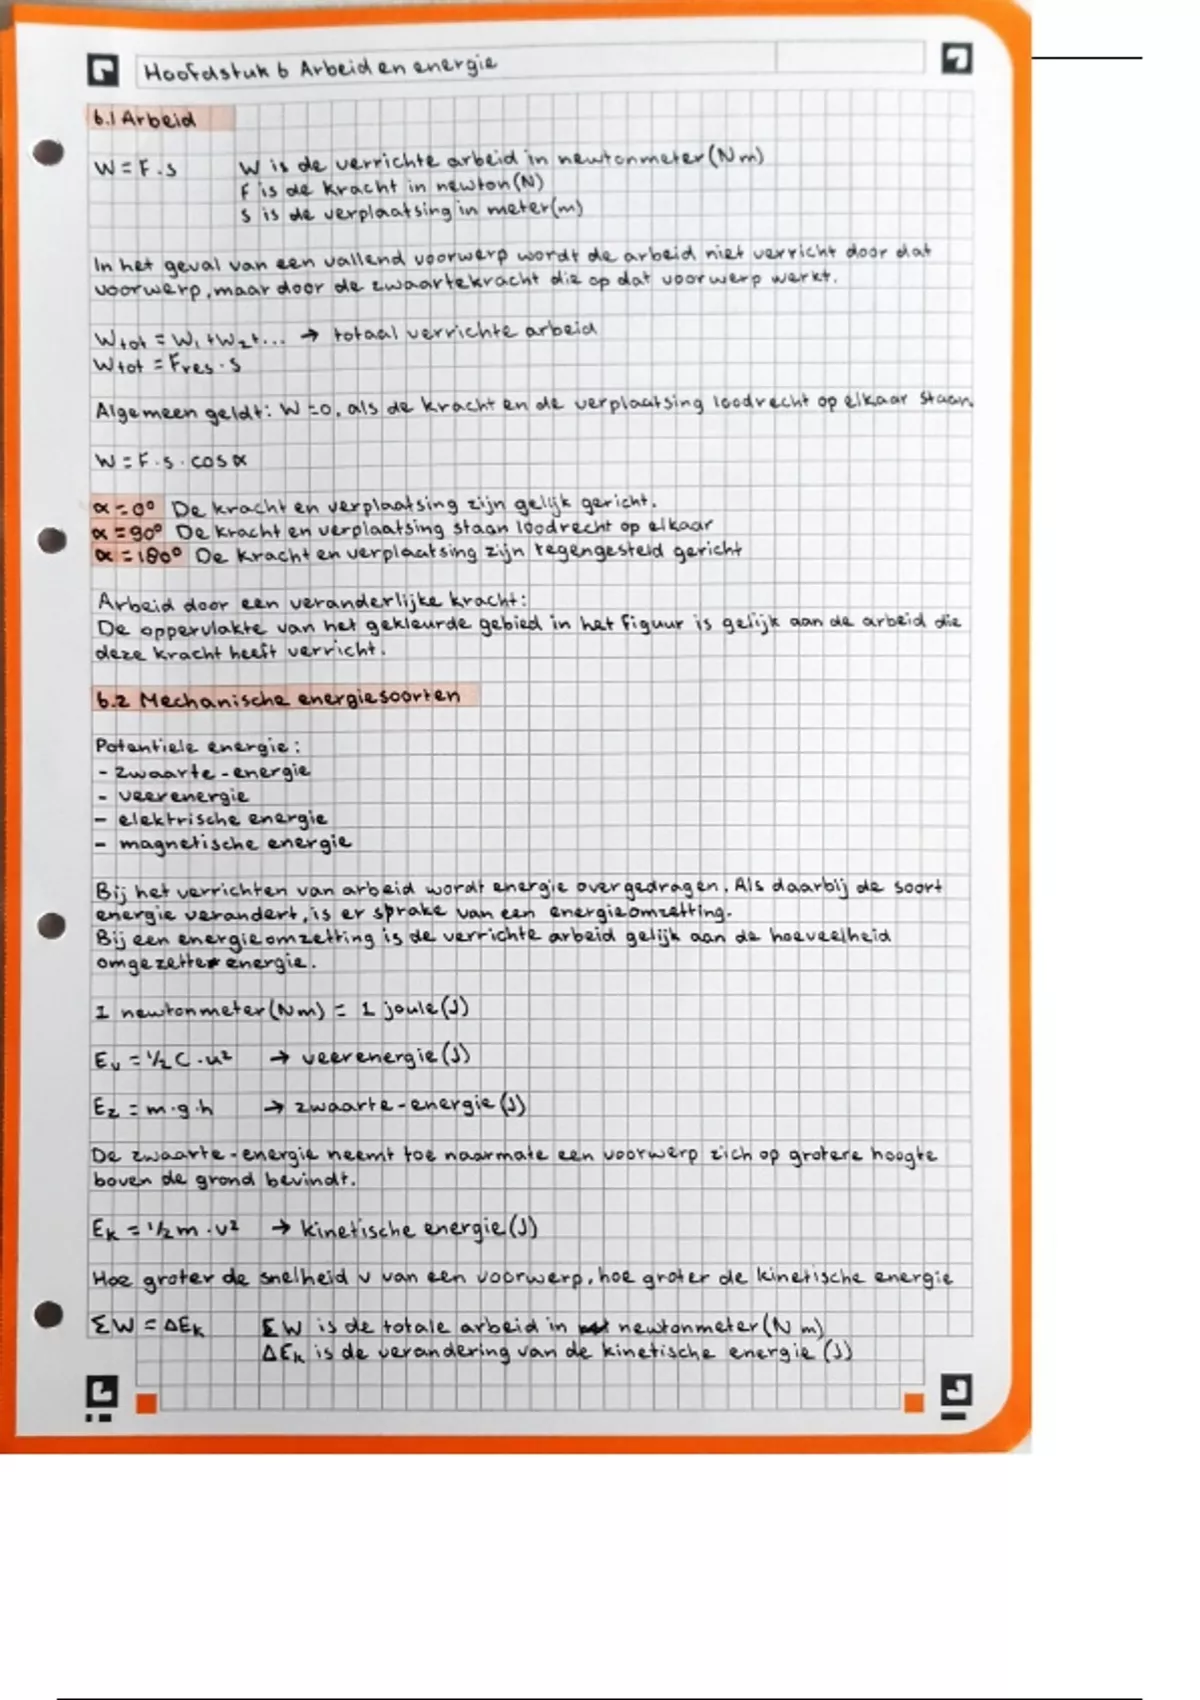 Hoofdstuk 6 Arbeid en energie
6.1 Arbeid
W = F . s W is de verrichte arbeid in newtonmeter (Nm)
F is de kracht in newton (N)
s is de verplaatsing in meter (m)
In het geval van een vallend voorwerp wordt de arbeid niet verricht door dat
voorwerp, maar door de zwaartekracht die op dat voorwerp werkt.
Wtot = W₁ + W₂ + ... → totaal verrichte arbeid
Wtot = Fres . s
Algemeen geldt: W = 0, als de kracht en de verplaatsing loodrecht op elkaar staan.
W = F . s . cos α
α = 0° De kracht en verplaatsing zijn gelijk gericht.
α = 90° De kracht en verplaatsing staan loodrecht op elkaar
α = 180° De kracht en verplaatsing zijn tegengesteld gericht
Arbeid door een veranderlijke kracht:
De oppervlakte van het gekleurde gebied in het figuur is gelijk aan de arbeid die
deze kracht heeft verricht.
6.2 Mechanische energiesoorten
Potentiele energie:
- zwaarte-energie
- veerenergie
- elektrische energie
- magnetische energie
Bij het verrichten van arbeid wordt energie overgedragen. Als daarbij de soort
energie verandert, is er sprake van een energieomzetting.
Bij een energieomzetting is de verrichte arbeid gelijk aan de hoeveelheid
omgezette energie.
1 newtonmeter (Nm) = 1 joule (J)
Ev = ½ C . u² → veerenergie (J)
Ez = m . g . h → zwaarte-energie (J)
De zwaarte-energie neemt toe naarmate een voorwerp zich op grotere hoogte
boven de grond bevindt.
Ek = ½ m . v² → kinetische energie (J)
Hoe groter de snelheid v van een voorwerp, hoe groter de kinetische energie
ΣW = ΔEk ΣW is de totale arbeid in newtonmeter (Nm)
ΔEk is de verandering van de kinetische energie (J)